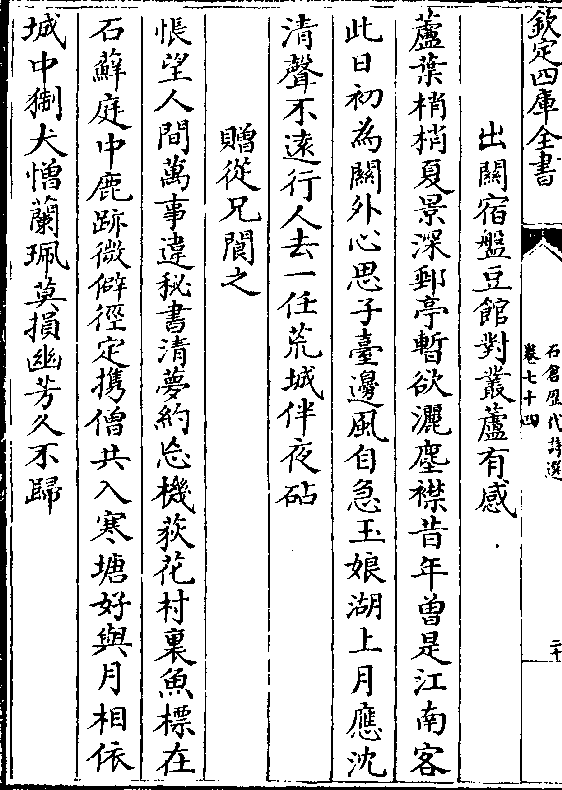 欽定四庫全書
石倉歷代詩選
卷七十四
二十
出關宿盤豆館對叢蘆有感
蘆葉梢梢夏景深郵亭暫欲灑塵襟昔年曾是江南客
此日初為關外心思子臺邊風自急玉娘湖上月應沈
清聲不逺行人去一任荒城伴夜砧
贈從兄閬之
悵望人間萬事違秘書清夢約忘機荻花村裏魚標在
石蘚庭中鹿跡微僻徑定携僧共入寒塘好與月相依
城中猘犬憎蘭珮莫損幽芳久不歸